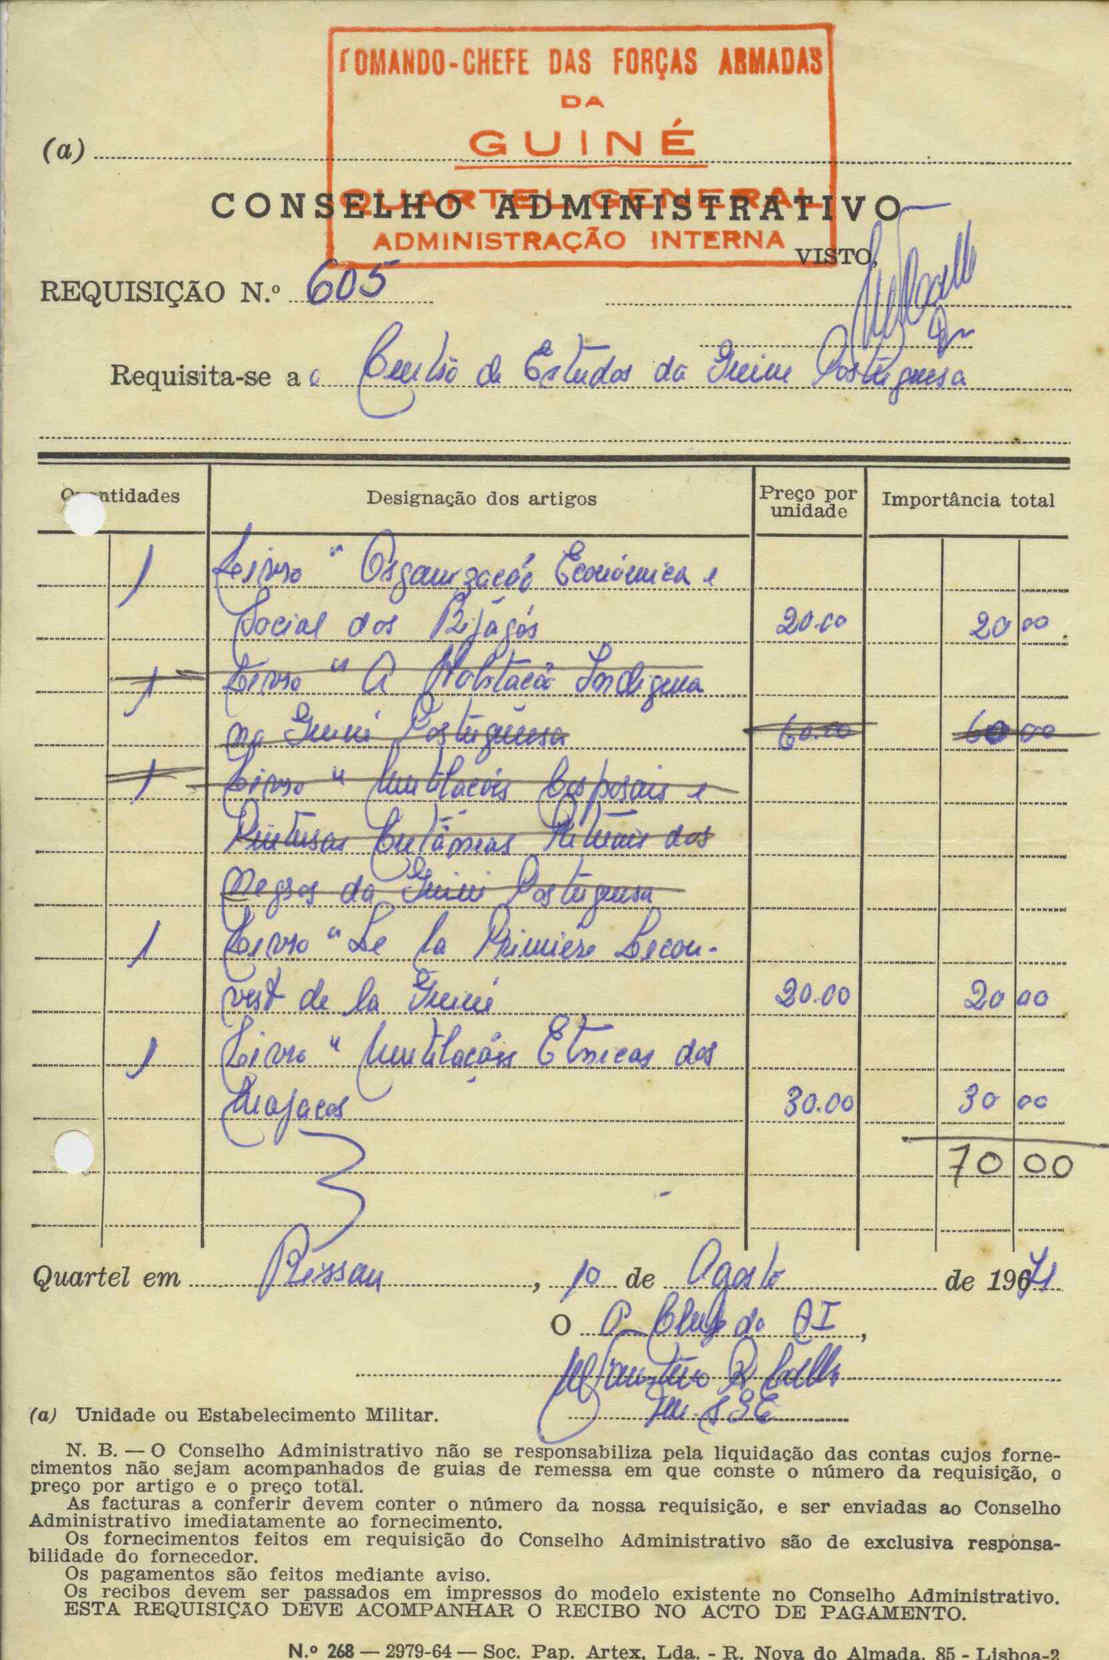 COMANDO-CHEFE DAS FORÇAS ARMADAS
DA
GUINÉ
(a)
QUARTEL GENERAL
CONSELHO ADMINISTRATIVO
ADMINISTRAÇÃO INTERNA
VISTO,
REQUISIÇÃO N.º 605
Requisita-se a o Centro de Estudos da Guiné Portuguesa
Quantidades Designação dos artigos Preço por unidade Importância total
1 Livro " Organização Económica e
Social dos Bijagós 20.00 20 00
1 Livro " A Habitação Indigena
na Guiné Portuguesa 60.00 60 00
1 Livro " Mutilações Corporais e
Pinturas Cutâneas Rituais dos
Negros da Guiné Portuguesa
1 Livro " De la Primière Decou-
vert de la Guiné 20.00 20 00
1 Livro " Mutilações Etnicas dos
Majacos 30.00 30 00
70 00
Quartel em Bissau, 10 de Agosto de 1971
O Chefe da AI,
(a) Unidade ou Estabelecimento Militar.
N. B. — O Conselho Administrativo não se responsabiliza pela liquidação das contas cujos forne-
cimentos não sejam acompanhados de guias de remessa em que conste o número da requisição, o
preço por artigo e o preço total.
As facturas a conferir devem conter o número da nossa requisição, e ser enviadas ao Conselho
Administrativo imediatamente ao fornecimento.
Os fornecimentos feitos em requisição do Conselho Administrativo são de exclusiva responsa-
bilidade do fornecedor.
Os pagamentos são feitos mediante aviso.
Os recibos devem ser passados em impressos do modelo existente no Conselho Administrativo.
ESTA REQUISIÇÃO DEVE ACOMPANHAR O RECIBO NO ACTO DE PAGAMENTO.
N.º 268 — 2979-64 — Soc. Pap. Artex, Lda. - R. Nova do Almada, 85 - Lisboa-2